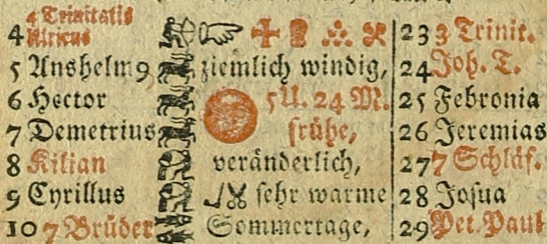 4 Trinitatis
4 Ulricus 23 3 Trinit.
5 Anshelm 9 ziemlich windig, 24 Joh. T.
6 Hector 5 U. 24 M. 25 Febronia
7 Demetrius frühe, 26 Jeremias
8 Kilian veränderlich, 27 7 Schläf.
9 Cyrillus sehr warme 28 Josua
10 7 Brüder Sommertage, 29 Pet. Paul